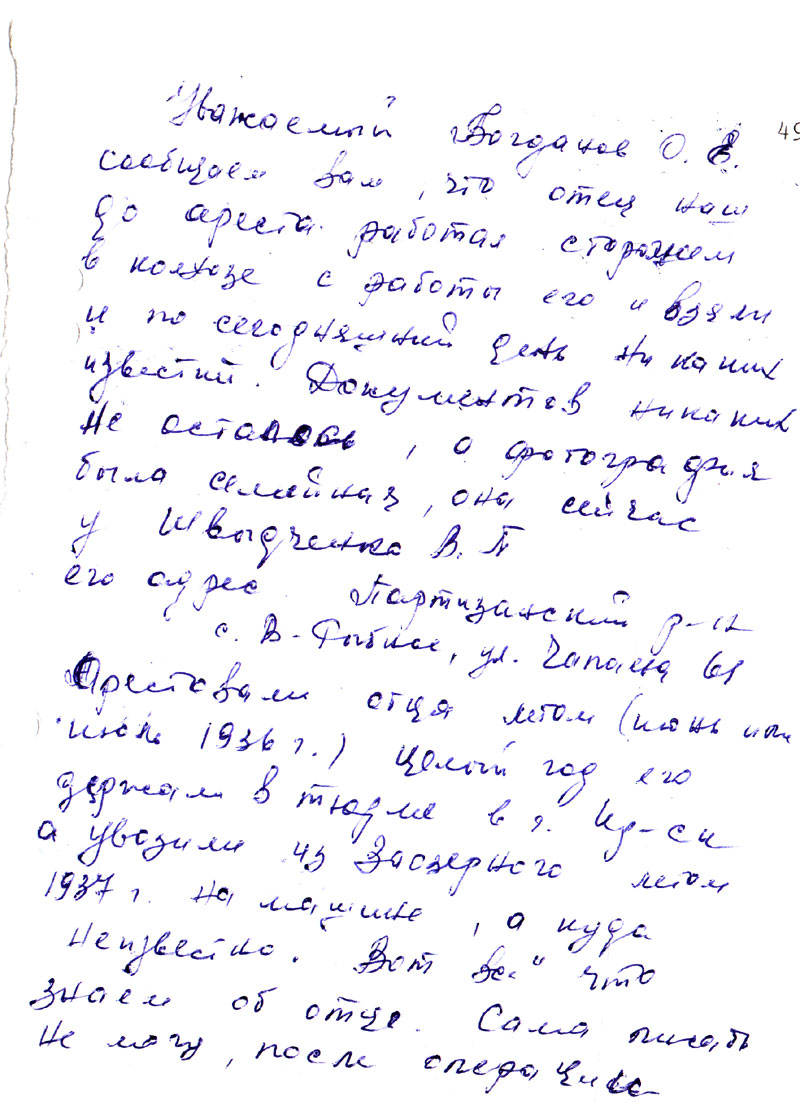 49
Уважаемый Богданов О. Е.
сообщаем вам, что отец наш
до ареста работал сторожем
в колхозе с работы его и взяли
и по сегодняшний день ни каких
известий. Документов никаких
не осталось, а фотография
была семейная, она сейчас
у Швыдченко В. П
его адрес Партизанский р-н
с. В-Рыбное, ул. Чапаева 61
Арестовали отца летом (июнь или
июль 1936 г.) целый год его
держали в тюрме в г. Кр-ск
а увозили из Заозерного летом
1937 г. на машине, а куда
неизвестно. Вот все что
знаем об отце. Сама писать
не могу, после операции